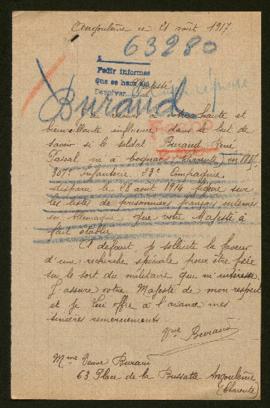 Angoulême le 21 août 1917
63280
A
Pedir informes
que se han de
Buraud
haute et
bienveillante influence dans le but de
savoir si le soldat Buraud René
Pascal né à Cognac (Charente) en
307e Infanterie 23e Compagnie
disparu le 28 août 1914 figure sur
les listes de prisonniers français internés
en Allemagne que votre Majesté a
fait établir
A défaut je sollicite la faveur
d'une recherche spéciale pour être fixée
sur le sort du militaire qui m'intéresse
J'assure votre Majesté de mon respect
et je lui offre à l'avance mes
sincères remerciements
Vve Buraud
Mme Veuve Buraud
63 Place de la Bussatte Angoulême
(Charente)